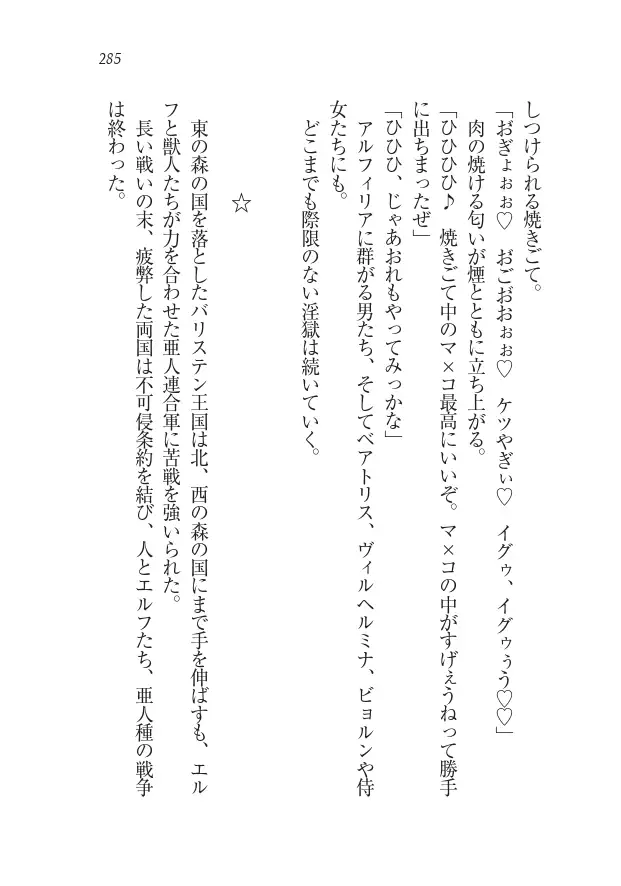 285
しつけられる焼きごて。
「おぎょぉぉ♡　おごおおぉぉ♡　ケツやぎぃ♡　イグゥ、イグゥぅう♡♡」
　肉の焼ける匂いが煙とともに立ち上がる。
「ひひひひ♪　焼きごて中のマ×コ最高にいいぞ。マ×コの中がすげぇうねって勝手
に出ちまったぜ」
「ひひひ、じゃあおれもやってみっかな」
　アルフィリアに群がる男たち、そしてベアトリス、ヴィルヘルミナ、ビョルンや侍
女たちにも。
　どこまでも際限のない淫獄は続いていく。
☆
　東の森の国を落としたバリステン王国は北、西の森の国にまで手を伸ばすも、エル
フと獣人たちが力を合わせた亜人連合軍に苦戦を強いられた。
　長い戦いの末、疲弊した両国は不可侵条約を結び、人とエルフたち、亜人種の戦争
は終わった。